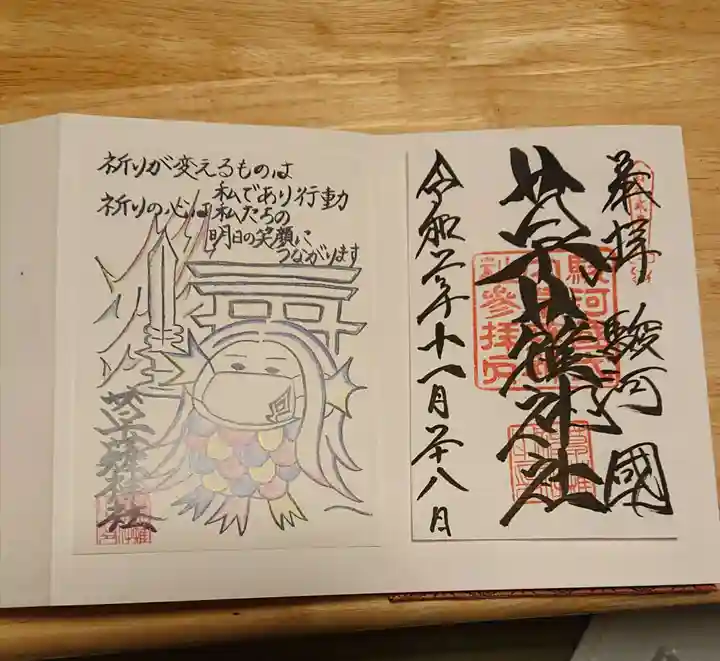 祈りが変えるものは
私であり行動
祈りの心は私たちの
明日の笑顔に
つながります
草薙神社
奉拝 駿河國
草薙神社
令和二年十一月廿八日